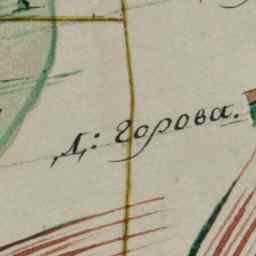 Д: Горова.